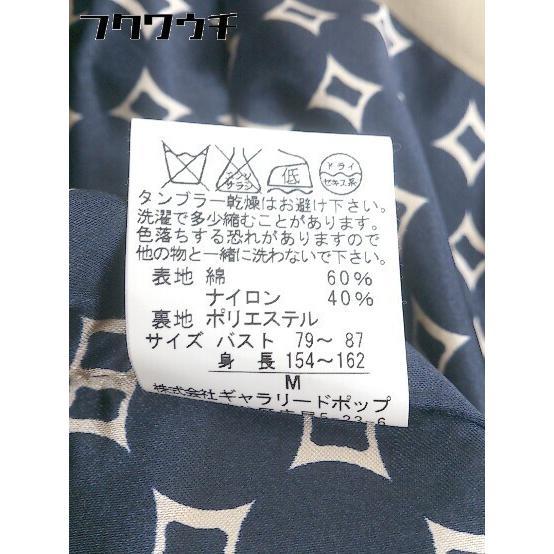 フクワウチ
エンソ
サラシ
低
ドライ
セキユ系
タンブラー乾燥はお避け下さい。
洗濯で多少縮むことがあります。
色落ちする恐れがありますので
他の物と一緒に洗わないで下さい。
表地 綿 60%
ナイロン 40%
裏地 ポリエステル
サイズ バスト 79〜 87
身 長 154〜162
M
株式会社ギャラリードポップ
5-33-6